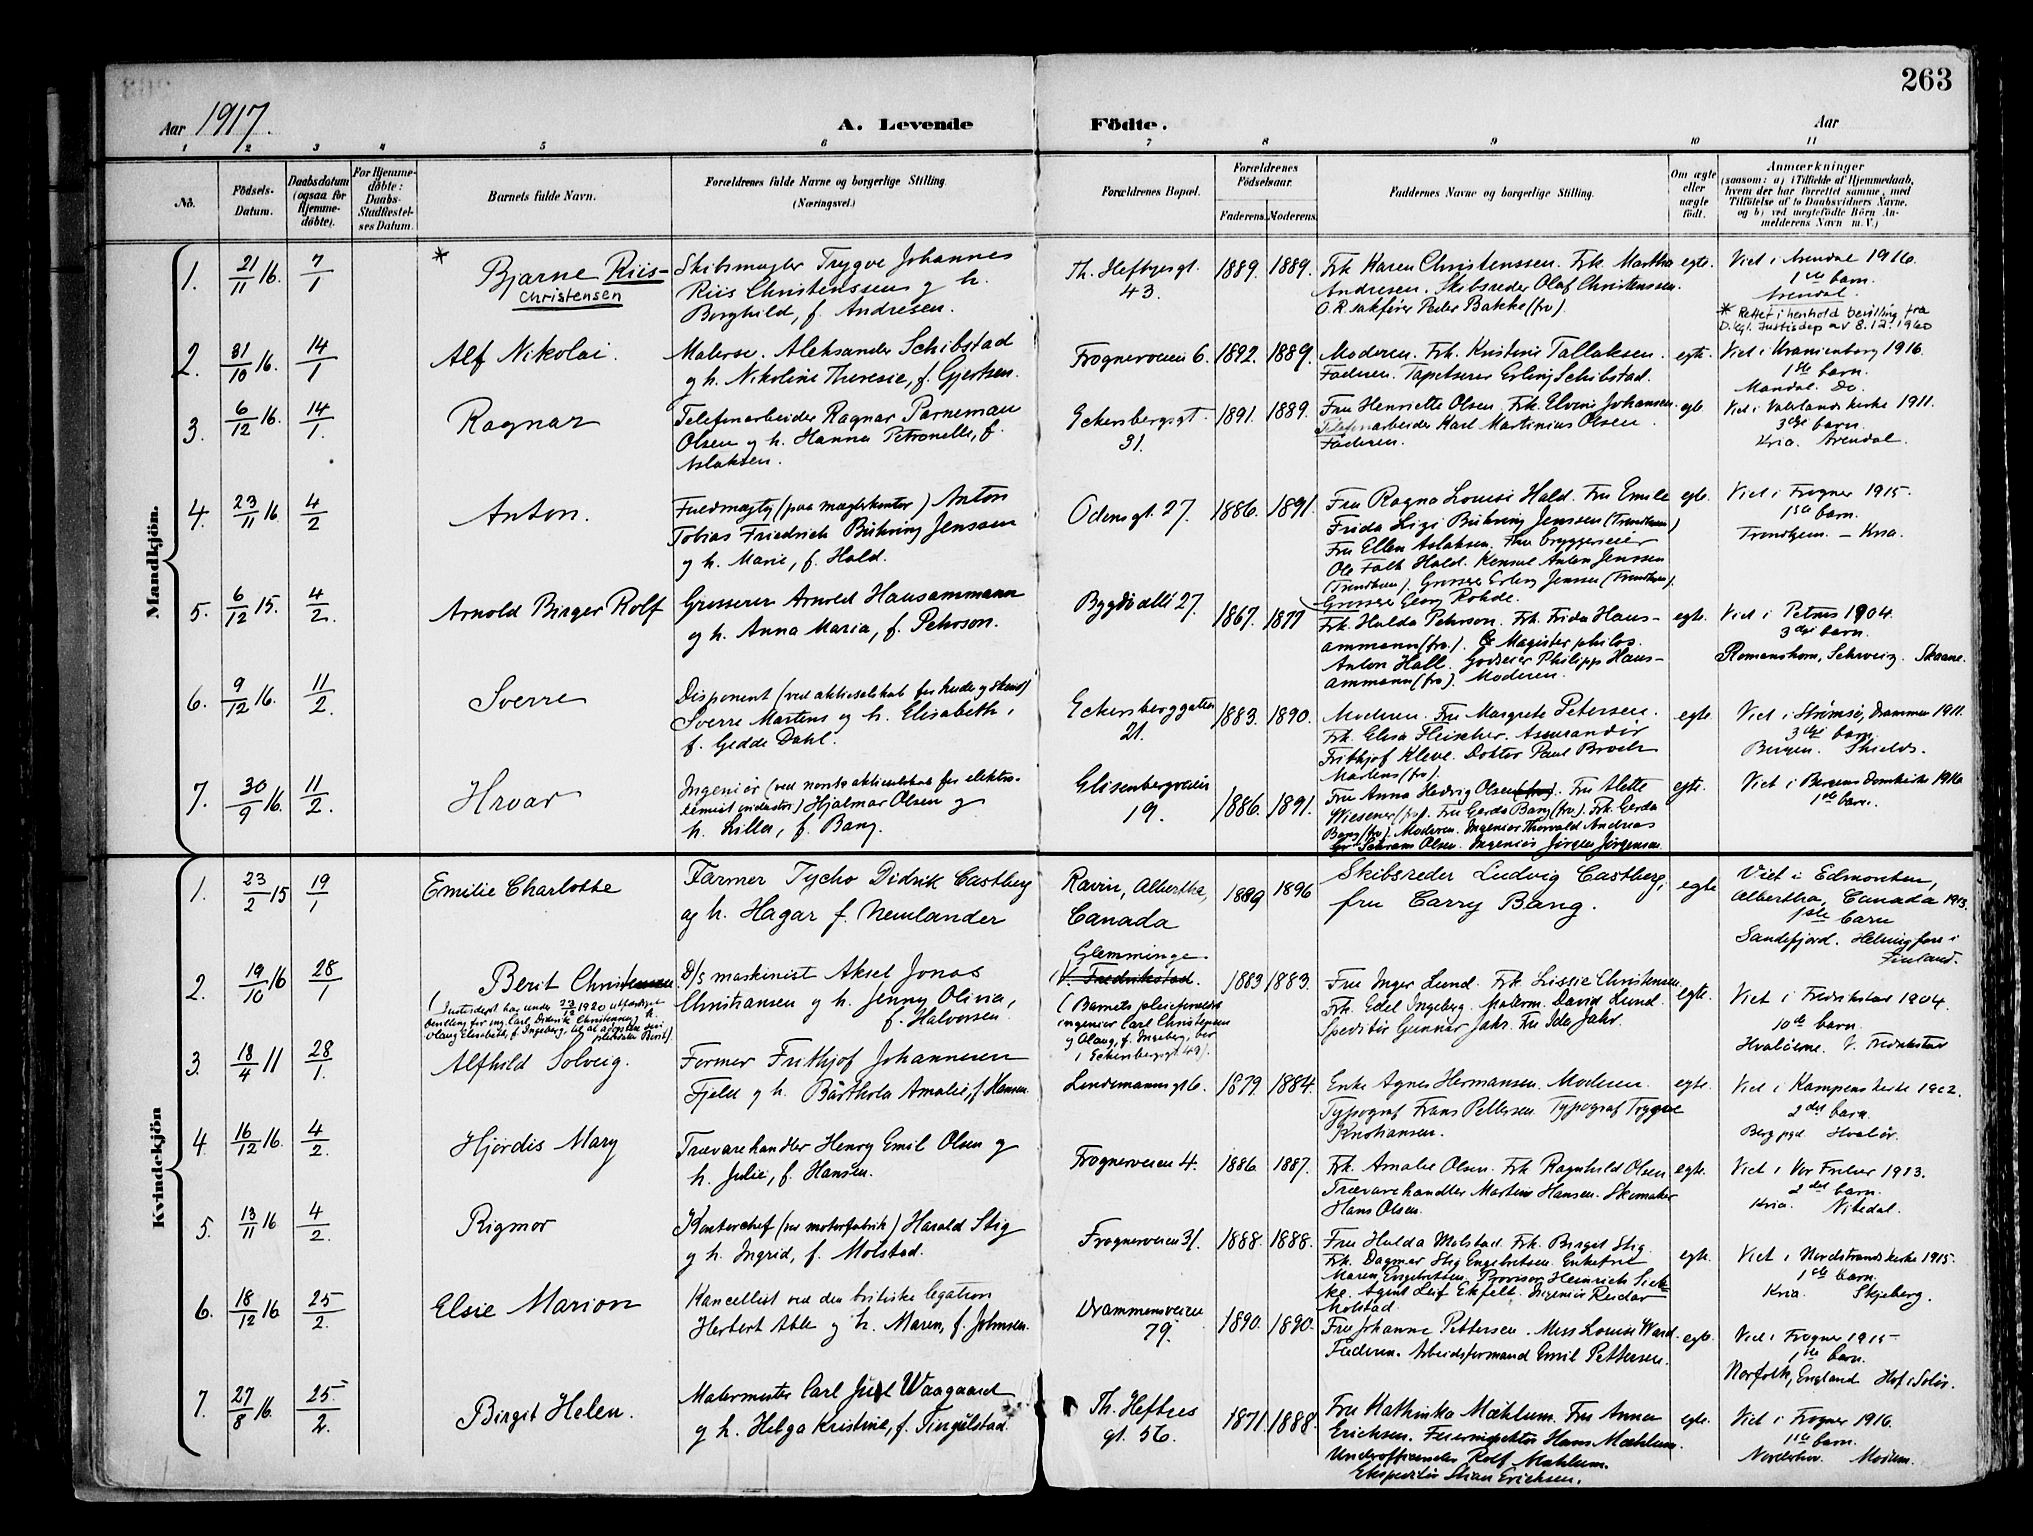 263
Aar 1917.
A. Levende Födte.
Aar
1 2 3 4 5 6 7 8 9 10 11
No.
Födsels-Datum.
Daabsdatum (ogsaa for Hjemmedöbte).
For Hjemmedöbte: Daabs-Stadfæstelses Datum.
Barnets fulde Navn.
Forældrenes fulde Navne og borgerlige Stilling. (Næringsvei.)
Forældrenes Bopæl.
Forældrenes Födselsaar.
Faderens. Moderens.
Faddernes Navne og borgerlige Stilling.
Om ægte eller uægte födt.
Anmærkninger
(saasom: a) i Tilfælde af Hjemmedaab,
hvem der har forrettet samme, med
Tilföielse af to Daabsvidners Navne,
og b) ved uægtefödte Börn Anmelderens Navn m.V.)
Mandkjön.
1. 21/11 16. 7/1
* Bjarne Riis-
Christensen
Skibsmægler Trygve Johannes
Riis Christenssen og h.
Borghild, f. Andresen.
Th. Heftyesgt.
43.
1889. 1889.
Frk. Karen Christenssen. Frk. Martha
Andresen. Skibsreder Olaf Christenssen.
O.R.sakfører Peder Bakke (fr).
egte.
Viet i Arendal 1916.
1ste barn.
Arendal.
* Rettet i henhold bevilling fra
D. kgl. Justisdep av 8.12.1960
2. 31/10 16. 14/1
Alf Nikolai.
Malersv. Aleksander Schibstad
og h. Nikoline Theresie, f. Gjertsen.
Frognerveien 6. 1892. 1889.
Moderen. Frk. Kristine Tallaksen.
Faderen. Tapetserer Erling Schibstad.
egte.
Viet i Uranienborg 1916.
1ste barn.
Mandal. do.
3. 6/12 16. 14/1.
Ragnar
Telefonarbeider Ragnar Parneman
Olsen og h. Hanna Petronelle, f.
Aslaksen.
Eckersbergsgt.
31.
1891. 1889.
Fru Henriette Olsen. Frk. Elvine Johansen.
Telefonarbeider Karl Martinius Olsen.
Faderen.
egte.
Viet i Vaterlands kirke 1911.
3dje barn.
Kria. Arendal.
4. 23/11 16 4/2
Anton.
Fuldmægtig (paa mæglerkontor) Anton
Tobias Friedrich Bühring Jenssen
og h. Marie, f. Hald.
Odensgt. 27. 1886. 1891.
Fru Ragna Louise Hald. Fru Emile
Frida Bühring Jenssen (Trondhjem)
Fru Ellen Aslaksen. bryggerieier
Ole Falk Hald. Konsul Anton Jenssen
(Trondhjem). Grosserer Erling Jenssen (Trondhjem).
Grosserer Georg Rohde.
egte.
Viet i Frogner 1915.
1ste barn.
Trondhjem. – Kria.
5. 6/12 15. 4/2.
Arnold Birger Rolf
Grosserer Arnold Hausammann
og h. Anna Maria, f. Pehrson.
Bygdö allé 27. 1867. 1877
Frk. Hulda Pehrson. Frk. Frida Haus-
ammann (frv.). Magister philos.
Anton Hall. Godseier Philipp Haus-
ammann (frv). Moderen.
egte.
Viet i Petnes 1904.
3dje barn.
Romanshorn, Schweiz. Skaane.
6. 9/12 16. 11/2.
Sverre
Disponent (ved aktieselskab for huder og skind)
Sverre Martens og h. Elisabeth,
f. Gedde Dahl.
Eckersberggaten
21.
1883. 1890.
Moderen. Fru Margrete Petersen.
Frk. Elisa Fleischer. Assurandør
Frithjof Kleve. Doktor Paul Broch
Martens (frv).
egte.
Viet i Strømsø, Drammen 1911.
3dje barn.
Bergen. Shields.
7. 30/9 16. 11/2.
Hroar
Ingeniør (ved norsk aktieselskab for elektro-
kemisk industri) Hjalmar Olsen og
h. Lilla, f. Bang.
Glisenbergveien
19.
1886. 1891.
Fru Anna Hedvig Olsen (frv). Fru Alette
Wiesener (frv). Fru Gerda Bang (frv). Frk. Gerda
Bang (frv). Moderen. Ingeniør Thorvald Andreas
Schram Olsen. Ingeniør Jørgen Jørgensen.
egte.
Viet i Bergens Domkirke 1916
1ste barn.
Kvindekjön
1. 23/2 15 19/1
Emilie Charlotte
Farmer Tycho Didrik Castberg
og h. Hagar f. Newlander
Ravin, Albertha,
Canada
1889 1896
Skibsreder Ludvig Castberg,
fru Carry Bang.
egte
Viet i Edmonton,
Albertha, Canada 1913.
1ste barn
Sandefjord. Helsingfors i
Finland.
2. 19/10 16 28/1
Berit Christensen
(Justisdept har under 23/12 1920 utfærdiget
bevilling for ing. Carl Didrik Christensen og h.
Olaug Elisabeth, f. Ingeberg, til at adoptere sin
pleiedatter Berit).
D/s maskinist Aksel Jonas
Christiansen og h. Jenny Olivia,
f. Halvorsen.
Glemminge
V. Fredrikstad.
(Barnets pleieforældre
ingeniør Carl Christensen
og Olaug, f. Ingeberg, bor
i Eckersbergsgt 49).
1883 1883.
Fru Inger Lund. Frk. Lissie Christensen
Frk. Edel Ingeberg. Malerm. David Lund.
Speditør Gunnar Jahr. Fru Ida Jahr.
egte.
Viet i Fredrikstad 1904.
10de barn.
Hvaløerne. V. Fredrikstad
3. 18/4 11 28/1.
Alfhild Solveig.
Former Frithjof Johannesen
Fjeld og h. Barthola Amalie, f. Hansen.
Lindemannsgt 6. 1879. 1884.
Enke Agnes Hermansen. Moderen.
Typograf Frans Pettersen. Typograf Trygve
Kristiansen.
egte.
Viet i Kampens kirke 1902.
2det barn.
Berg pgd. Hvaløer.
4. 16/12 16. 4/2.
Hjördis Mary
Trævarehandler Henry Emil Olsen og
h. Julie, f. Hansen.
Frognerveien 4. 1886. 1887.
Frk. Amalie Olsen. Frk Ragnhild Olsen
Trævarehandler Martin Hansen. Skomaker
Hans Olsen.
egte.
Viet i Vor Frelser 1913.
2det barn.
Kria. Nitedal.
5. 13/11 16 4/2.
Rigmor
Kontorchef (ved motorfabrik) Harald Stig
og h. Ingrid, f. Molstad.
Frognerveien 31. 1888. 1888.
Fru Hulda Molstad. Frk. Birgit Stig.
Frk. Dagmar Stig Engebretsen. Enkefru
Maren Engebretsen. Provisor Heinrich
Agent Leif Ekfelt. Ingeniør Reidar
Molstad.
egte.
Viet i Nordstrands kirke 1915.
1ste barn.
Kria. Skjeberg.
6. 18/12 16. 25/2.
Elsie Marion
Kancellist ved den britiske legation
Herbert Able og h. Maren, f. Johnsen.
Drammensveien
79.
1890. 1890.
Fru Johanne Pettersen. Miss Louise Ward.
Faderen. Arbeidsformand Emil Pettersen.
egte.
Viet i Frogner 1915
1ste barn.
Norfolk, England Hof i Solør.
7. 27/8 16. 25/2.
Birgit Helen.
Malermester Carl Juel Waagaard
og h. Helga Kristine, f. Tingelstad.
Th. Heftyes
gt. 56.
1871. 1888.
Fru Kathinka Mæhlum. Fru Anna
Erichsen. Hans Mæhlum.
Underofficer Rolf Mæhlum.
Ekspeditør Stian Erichsen.
egte.
Viet i Frogner 1916.
1ste barn.
Norderhov. Modum.